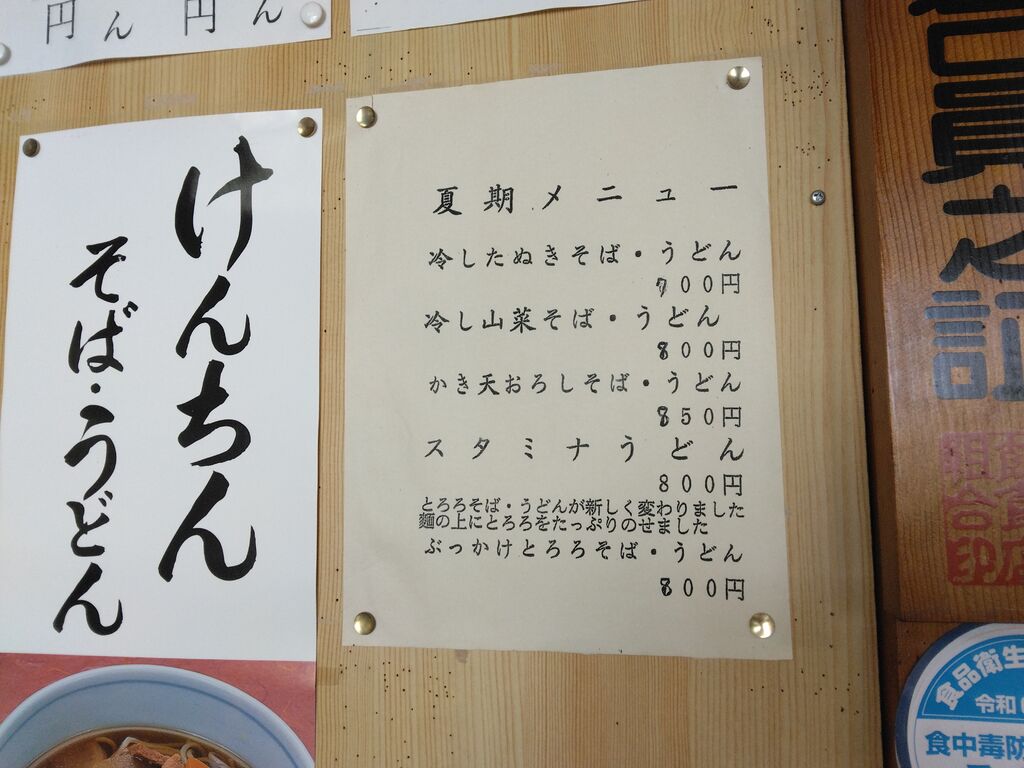 円 ん 円 ん
けんちん
そば・うどん
夏期メニュー
冷したぬきそば・うどん
700円
冷し山菜そば・うどん
800円
かき天おろしそば・うどん
850円
スタミナうどん
800円
とろろそば・うどんが新しく変わりました
麺の上にとろろをたっぷりのせました
ぶっかけとろろそば・うどん
800円
員之証
飲食店
組合印
食品衛生
令和
食中毒防